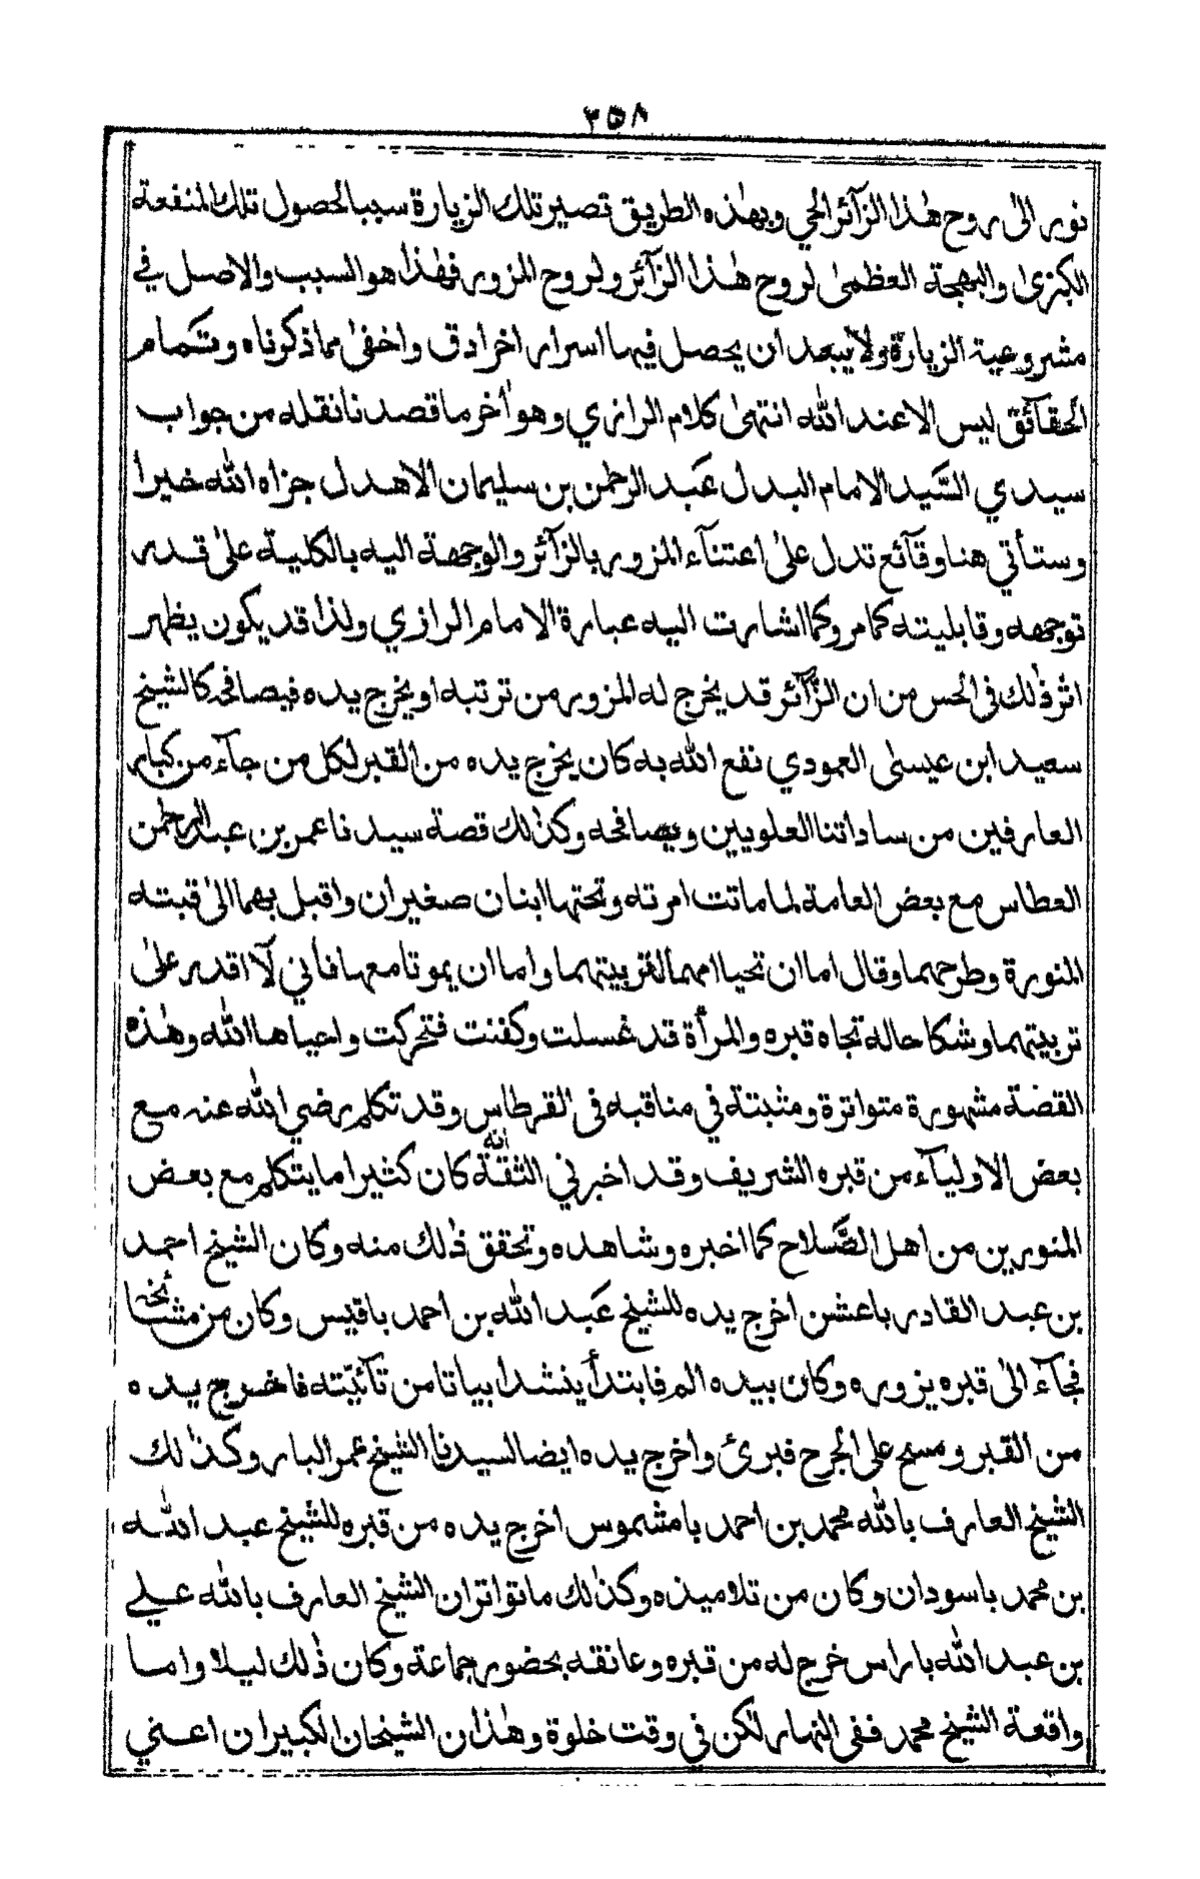 ٣٥٨
نور الى روح هذا الزآئر الحي وبهذه الطريق تصير تلك الزيارة سببا لحصول تلك المنفعة
الكبرى والبهجة العظمى لروح هذا الزآئر ولروح المزور فهذا هو السبب والاصل في
مشروعية الزيارة ولا يبعد ان يحصل فيها اسرار اخر ادق واخفى مما ذكرناه وتمام
الحقآئق ليس الا عند الله انتهى كلام الرازي وهو أخر ما قصدنا نقله من جواب
سيدي السّيد الامام البدل عبد الرحمن بن سليمان الاهدل جزاه الله خيرا
وستأتي هنا وقآئع تدل على اعتنآء المزور بالزآئر والوجهة اليه بالكلية على قدر
توجهه وقابليته كما مر وكما اشارت اليه عبارة الامام الرازي ولذا قد يكون يظهر
اثر ذلك فى الحس من ان الزآئر قد يخرج له المزور من تربته او يخرج يده فيصافحه كالشيخ
سعيد ابن عيسى العمودي نفع الله به كان يخرج يده من القبر لكل من جآء من كبار
العارفين من ساداتنا العلويين ويصافحه وكذلك قصة سيدنا عمر بن عبد الرحمن
العطاس مع بعض العامة لما ماتت امرته وتحتها ابنان صغيران واقبل بهما الى قبته
المنورة وطرحهما وقال اما ان تحيا امهما لتربيتهما واما ان يموتا معها فأني لآ اقدر على
تربيتهما وشكا حاله تجاه قبره والمرأة قد غسلت وكفنت فتحركت واحياها الله وهذه
القضة مشهورة متواترة ومثبتة في مناقبه فى القرطاس وقد تكلم رضي الله عنه مع
بعض الاوليآء من قبره الشريف وقد اخبرني الثقة انه كان كثيرا ما يتكلم مع بعض
المنورين من اهل الصّلاح كما اخبره وشاهده وتحقق ذلك منه وكان الشيخ احمد
بن عبد القادر باعشن اخرج يده للشيخ عبد الله بن احمد باقيس وكان من مشائخه
فجآء الى قبره يزوره وكان بيده الم فابتدأ ينشد ابياتا من تآئيّته فاخرج يده
من القبر ومسح على الجرح فبرئ واخرج يده ايضا لسيدنا الشيخ عمر البار وكذلك
الشيخ العارف بالله محمد بن احمد بامشموس اخرج يده من قبره للشيخ عبد الله
بن محمد باسودان وكان من تلاميذه وكذلك ما تواتر ان الشيخ العارف بالله علي
بن عبد الله باراس خرج له من قبره وعانقه بحضور جماعة وكان ذلك ليلا واما
واقعة الشيخ محمد ففى النهار لكن في وقت خلوة وهذان الشيخان الكبيران اعني